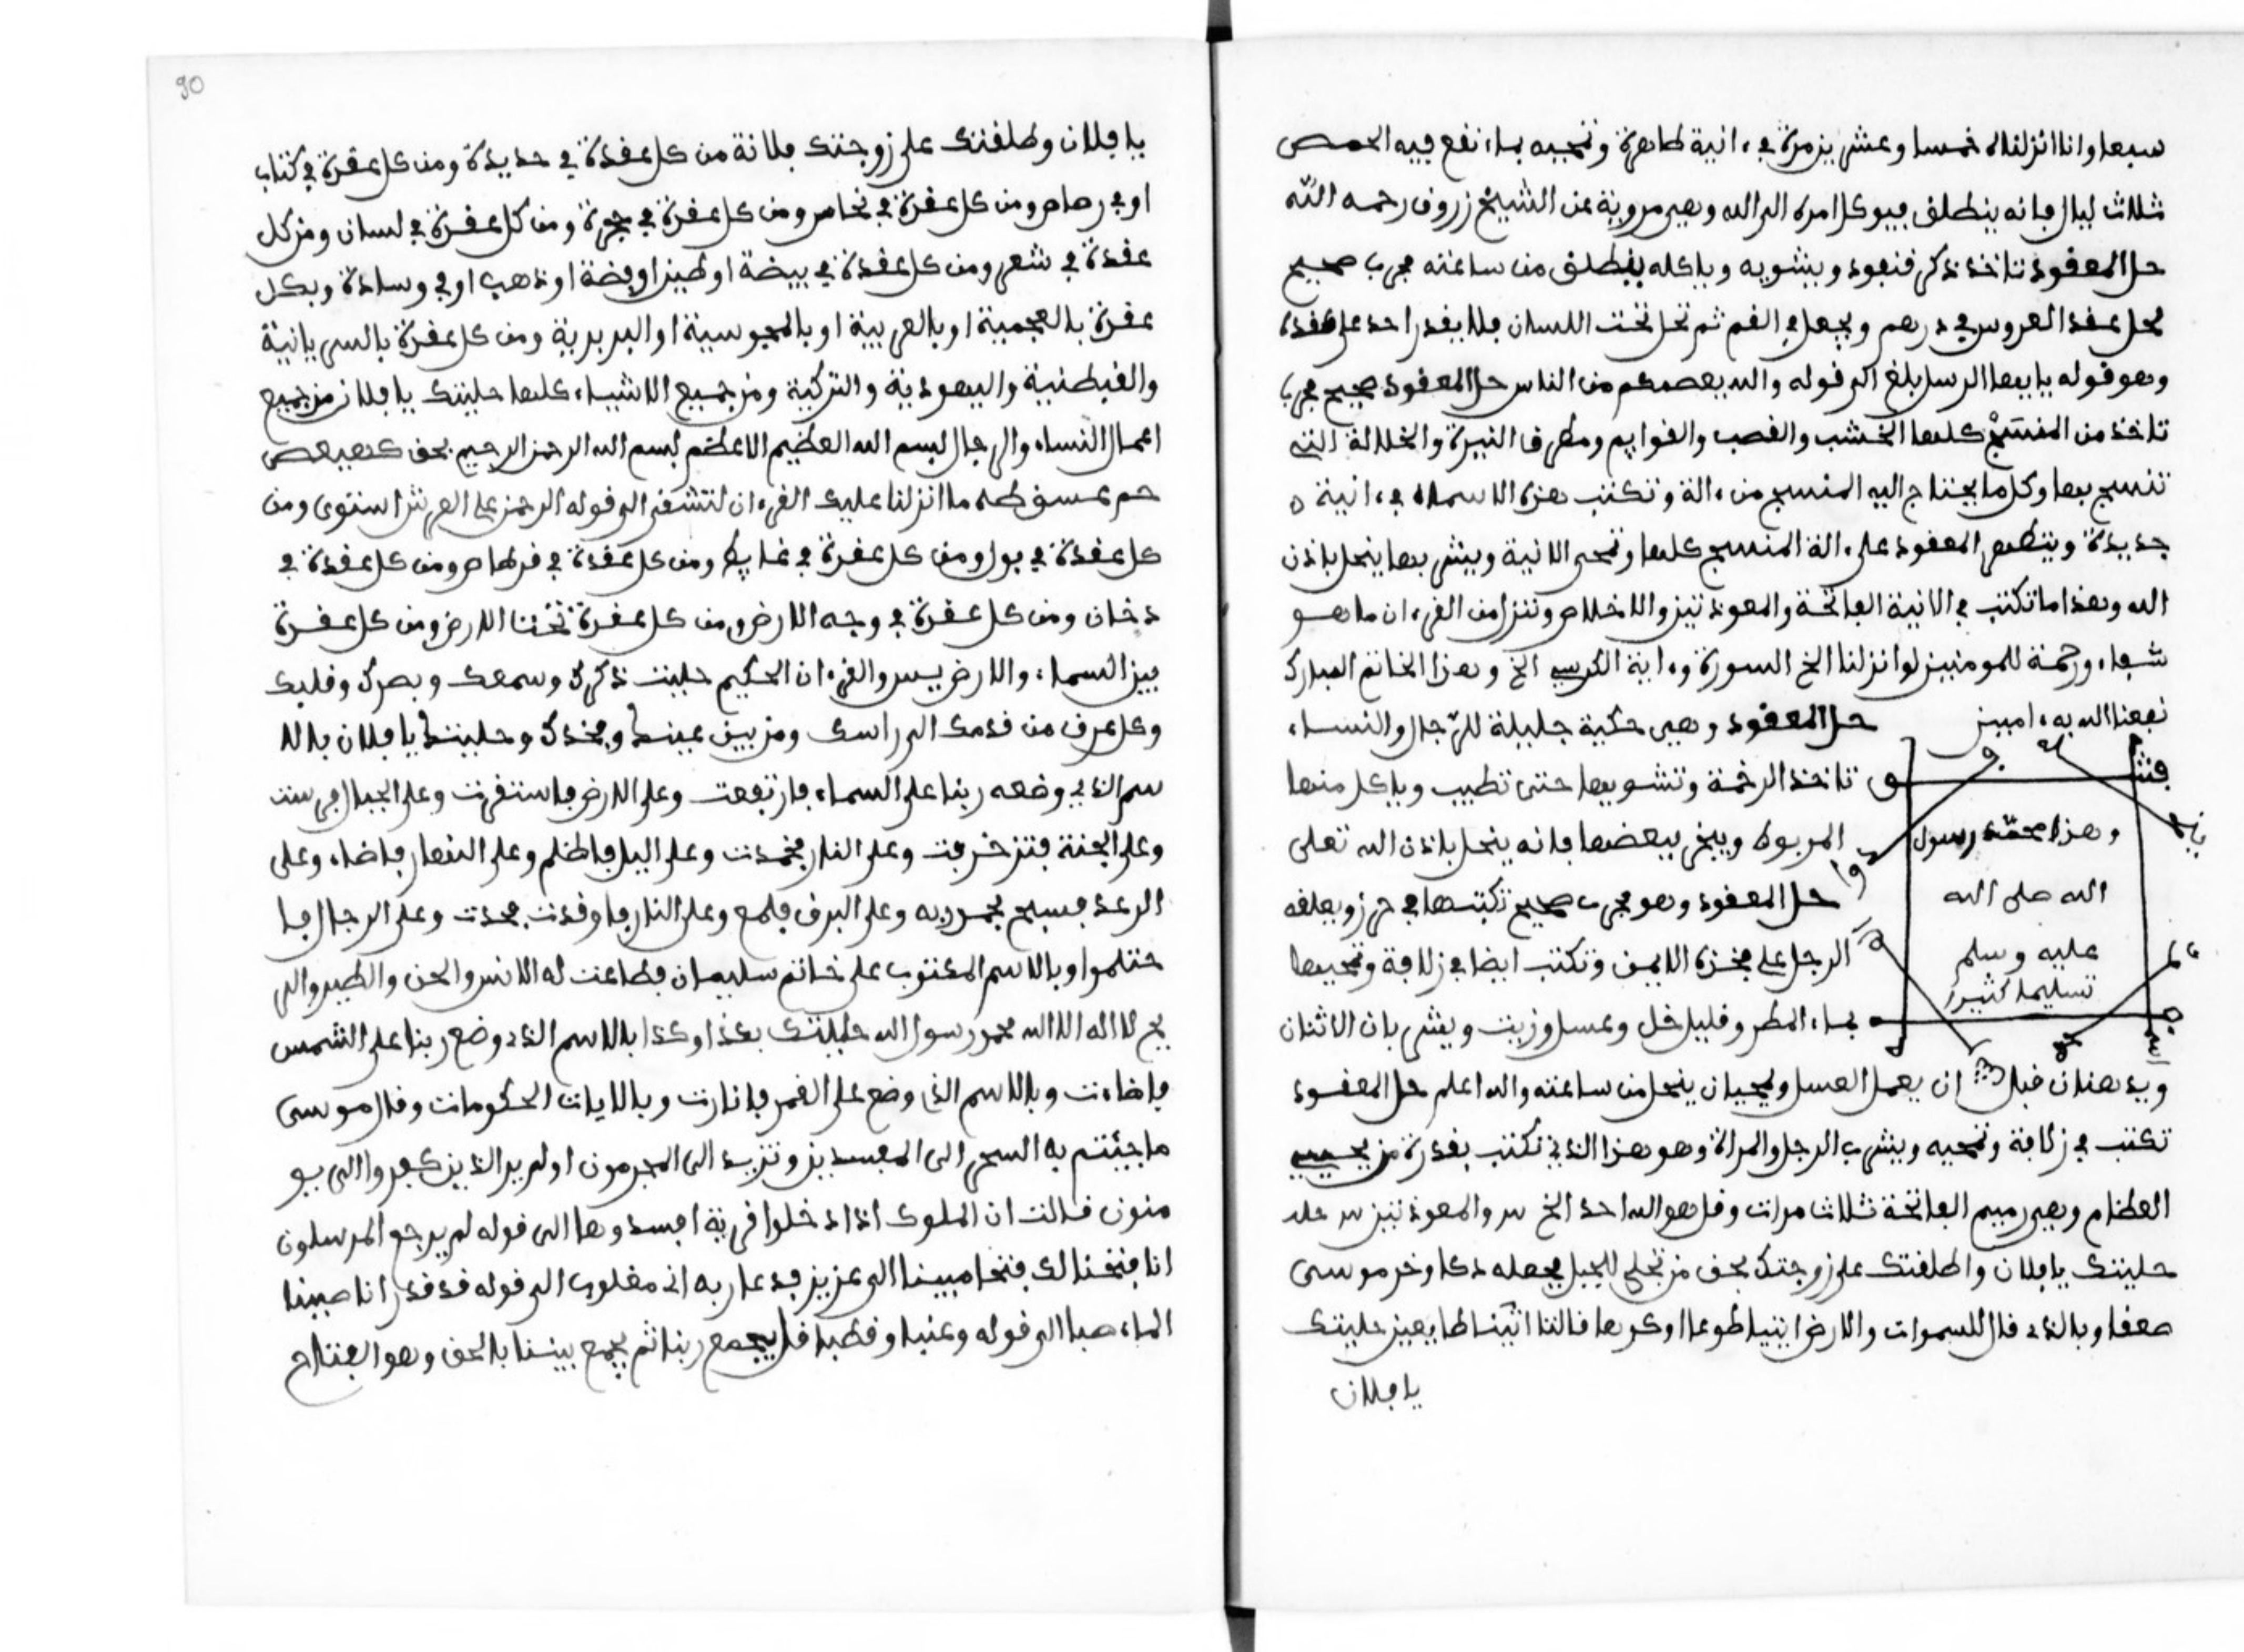 سبعا وانا انزلناه خمسا وعشرين مرة في ءانية طاهرة وتمحيه بماء نفع فيه الحمص
ثلاث ليال فانه ينطلق فيوكل امره الى الله وهي مروية عن الشيخ زروق رحمه الله
حل المعقود تاخذ ذكر قنفود ويشويه وياكله ينطلق من ساعته مجرب صحيح
محل عقد العروس في درهم ويجعل في الفم ثم تحل تحت اللسان فلا يقدر احد على عقده
وهو قوله يايها الرسل بلغ الى قوله والله يعصمكم من الناس حل المعقود صحيح مجرب
تاخذ من المنسج كلها الخشب والقصب والقوايم ومطرف النيرة والخلالة التي
تنسج بها وكل ما يحتاج اليه المنسج من ءالة وتكتب هذه الاسماء في ءانية
جديدة ويتطهر المعقود على ءالة المنسج كلها وتمحى الانية ويشربها ينحل باذن
الله وهذا ما تكتب في الانية الفاتحة والمعوذتين والاخلاص وننزل من القرءان ما هو
شفاء ورحمة للمومنين لو انزلنا الخ السورة وءاية الكرسي الخ وهذا الخاتم المبارك
نفعنا الله به ءامين حل المعقود وهي حكية جليلة للرجال والنساء
تاخذ الرخمة وتشويها حتى تطيب وياكل منها
المربوط ويبخر ببعضها فانه ينحل باذن الله تعلى
حل المعقود وهو مجرب صحيح تكتبها في حرز ويعلقه
الرجل على فخذه الايمن وتكتب ايضا في زلافة وتمحيها
بماء المطر وقليل خل وعسل وزيت ويشربان الاثنان
وهذا محمد رسول
الله صلى الله
عليه وسلم
تسليما كثيرا
ويدهنان قبل ان يعمل العسل ويمحيان ينحل من ساعته والله اعلم حل المعقود
تكتب في زلافة وتمحيه ويشرب الرجل والمراة وهو هذا الذي تكتب بقدرة من يحيي
العظام وهي رميم الفاتحة ثلاث مرات وقل هو الله احد الخ والمعوذتين
حليتك يا فلان واطلقتك على زوجتك بحق من تجلى للجبل فجعله دكا وخر موسى
صعقا وبالذي قال للسموات والارض ايتيا طوعا او كرها قالتا اتينا طايعين حليتك
يا فلان
90
يا فلان وطلقتك على زوجتك فلانة من كل عقدة في حديدة ومن كل عقدة في كتاب
او في رصاص ومن كل عقدة في نحاس ومن كل عقدة في حجرة ومن كل عقدة في لسان ومن كل
عقدة في شعر ومن كل عقدة في بيضة او طين او فضة او ذهب او في وسادة وبكل
عقدة بالعجمية او بالعربية او بالمجوسية او البربرية ومن كل عقدة بالسريانية
والقبطنية واليهودية والتركية ومن جميع الاشياء كلها حليتك يا فلان من جميع
اعمال النساء والرجال بسم الله العظيم الاعظم بسم الله الرحمن الرحيم بحق كهيعص
حم عسق طه ما انزلنا عليك القرءان لتشقى الى قوله الرحمن على العرش استوى ومن
كل عقدة في بول ومن كل عقدة في غايط ومن كل عقدة في قرطاس ومن كل عقدة في
دخان ومن كل عقدة في وجه الارض ومن كل عقدة تحت الارض ومن كل عقدة
بين السماء والارض يس والقرءان الحكيم حليت ذكرك وسمعك وبصرك وقلبك
وكل عرق من قدمك الى راسك ومن بين عينيك وفخذك وحليتك يا فلان بالا
سم الذي وضعه ربنا على السماء فارتفعت وعلى الارض فاستقرت وعلى الجبال فرست
وعلى الجنة فتزخرفت وعلى النار فخمدت وعلى اليل فاظلم وعلى النهار فاضاء وعلى
الرعد فسبح بحمد ربه وعلى البرق فلمع وعلى النار فاوقدت فخمدت وعلى الرجال فا
حتلموا وبالاسم المكتوب على خاتم سليمان فطاعت له الانس والجن والطير والر
يح لا اله الا الله محمد رسول الله حليتك بكذا وكذا بالاسم الذي وضع ربنا على الشمس
فاضاءت وبالاسم الذي وضع على القمر فانارت وبالايات المحكومات وقال موسى
ما جيتم به السحر الى المفسدين وتزيد الى المجرمون اولم ير الذين كفروا الى يو
منون قالت ان الملوك اذا دخلوا قرية افسدوها الى قوله لم يرجع المرسلون
انا فتحنا لك فتحا مبينا الى عزيز فدعا ربه انى مغلوب الى قوله قد قدر انا صببنا
الماء صبا الى قوله وعنبا وقضبا قل يجمع ربنا ثم يجمع بيننا بالحق وهو الفتاح